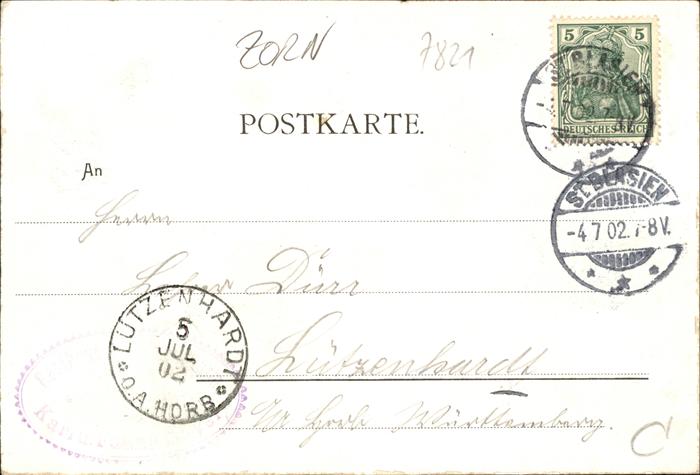 ZORN 7821
5 5
DEUTSCHES REICH
ST BLASIEN
POSTKARTE.
An
ST BLASIEN
-4.7.02.7-8V.
Herrn
Lehrer Dürr
Lützenhardt
O/A Horb Württemberg.
LÜTZENHARDT
5
JUL
02
O.A. HORB
C